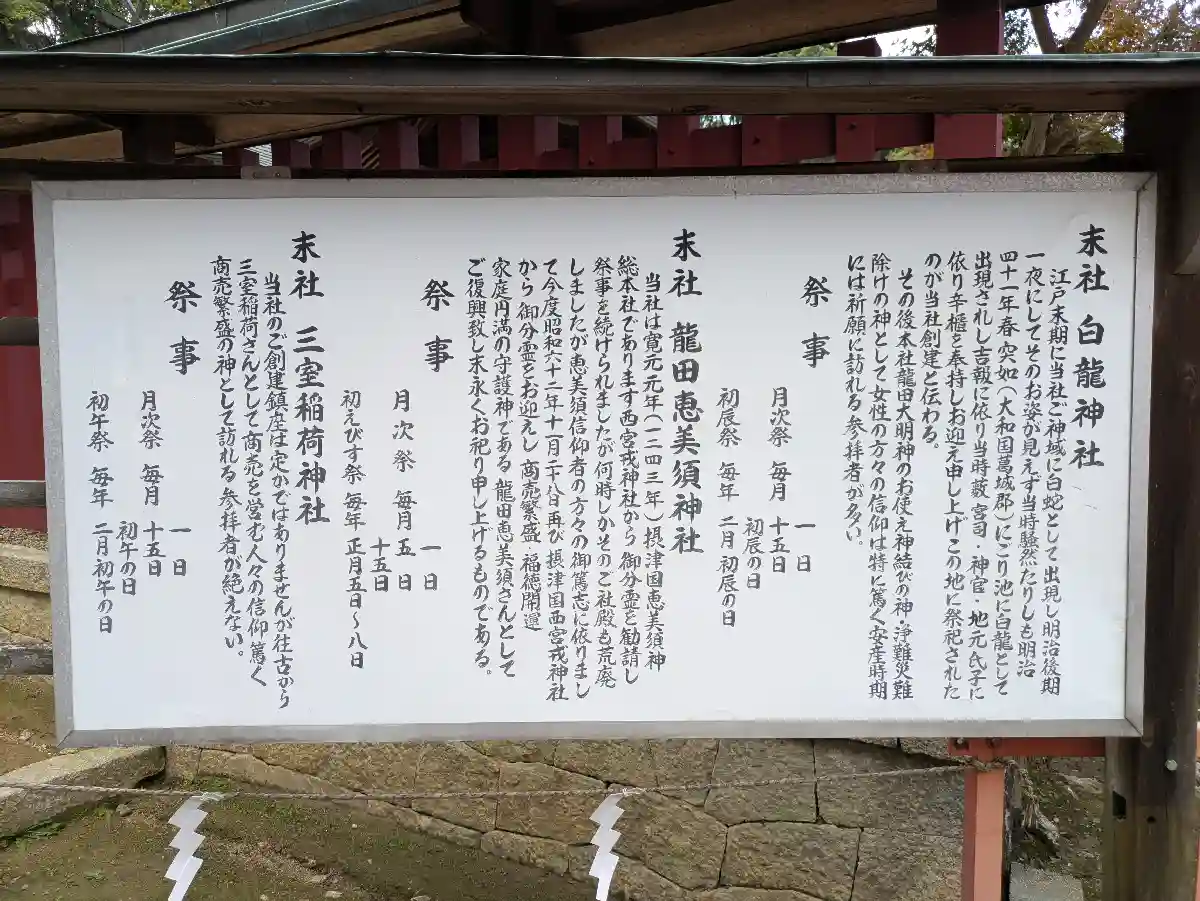 末社 白龍神社
江戸末期に当社ご神域に白蛇として出現し明治後期
一夜にしてそのお姿が見えず当時騒然たりしも明治
四十一年春突如(大和国葛城郡)にごり池に白龍として
出現されし吉報に依り当時藪宮司・神官・地元氏子に
依り辛櫃を奉持しお迎え申し上げこの地に祭祀された
のが当社創建と伝わる。
その後本社龍田大明神のお使え神結びの神・浄難災難
除けの神として女性の方々の信仰は特に篤く安産時期
には祈願に訪れる参拝者が多い。
祭事
月次祭 毎月 一日
十五日
初辰祭 毎年 初辰の日
二月初辰の日
末社 龍田恵美須神社
当社は寛元元年(一二四三年)摂津国恵美須神
総本社であります西宮戎神社から御分霊を勧請し
祭事を続けられましたが何時しかそのご社殿も荒廃
しましたが恵美須信仰者の方々の御篤志に依りまし
て今度昭和六十二年十一月二十八日再び摂津国西宮戎神社
から御分霊をお迎えし商売繁盛・福徳開運
家庭円満の守護神である龍田恵美須さんとして
ご復興致し末永くお祀り申し上げるものである。
祭事
月次祭 毎月 一日
五日
十五日
初えびす祭 毎年 正月五日～八日
末社 三室稲荷神社
当社のご創建鎮座は定かではありませんが往古から
三室稲荷さんとして商売を営む人々の信仰篤く
商売繁盛の神として訪れる参拝者が絶えない。
祭事
月次祭 毎月 一日
十五日
初午祭 毎年 初午の日
二月初午の日